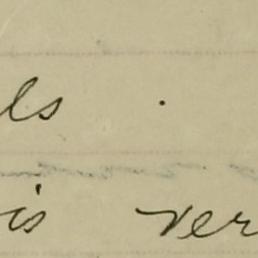 ls .
is ver